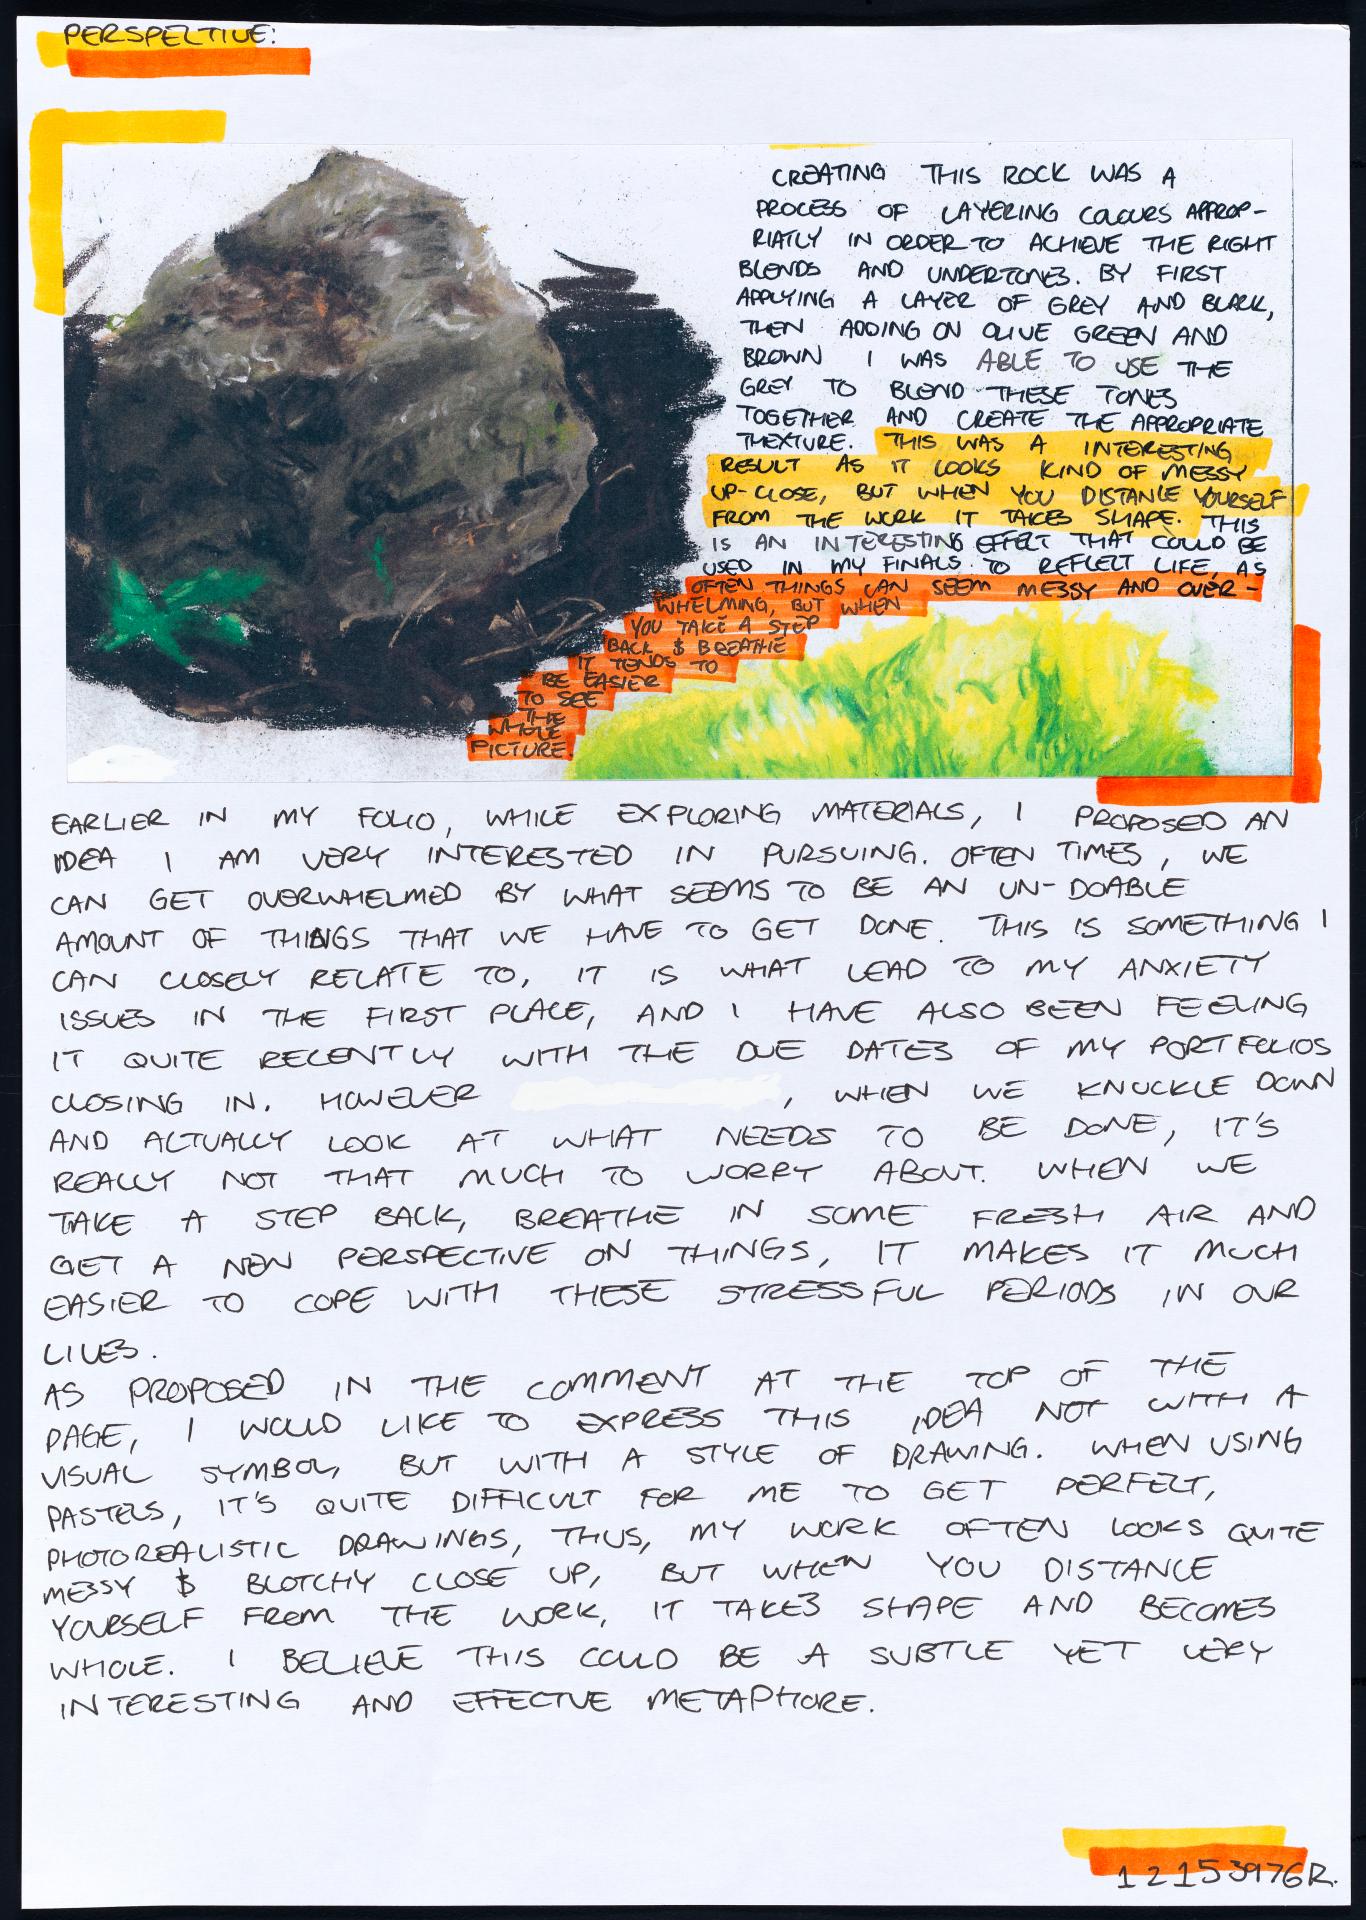 PERSPECTIVE:
CREATING THIS ROCK WAS A
PROCESS OF LAYERING COLOURS APPROP-
RIATLY IN ORDER TO ACHIEVE THE RIGHT
BLENDS AND UNDERTONES. BY FIRST
APPLYING A LAYER OF GREY AND BLACK,
THEN ADDING ON OLIVE GREEN AND
BROWN I WAS ABLE TO USE THE
GREY TO BLEND THESE TONES
TOGETHER AND CREATE THE APPROPRIATE
THEXTURE. THIS WAS A INTERESTING
RESULT AS IT LOOKS KIND OF MESSY
UP-CLOSE, BUT WHEN YOU DISTANCE YOURSELF
FROM THE WORK IT TAKES SHAPE. THIS
IS AN INTERESTING EFFECT THAT COULD BE
USED IN MY FINALS TO REFLECT LIFE, AS
OFTEN THINGS CAN SEEM MESSY AND OVER-
WHELMING, BUT WHEN
YOU TAKE A STEP
BACK & BREATHE
IT TENDS TO
BE EASIER
TO SEE
THE
WHOLE
PICTURE.
EARLIER IN MY FOLIO, WHILE EXPLORING MATERIALS, I PROPOSED AN
IDEA I AM VERY INTERESTED IN PURSUING. OFTEN TIMES, WE
CAN GET OVERWHELMED BY WHAT SEEMS TO BE AN UN-DOABLE
AMOUNT OF THINGS THAT WE HAVE TO GET DONE. THIS IS SOMETHING I
CAN CLOSELY RELATE TO, IT IS WHAT LEAD TO MY ANXIETY
ISSUES IN THE FIRST PLACE, AND I HAVE ALSO BEEN FEELING
IT QUITE RECENTLY WITH THE DUE DATES OF MY PORTFOLIOS
CLOSING IN. HOWEVER , WHEN WE KNUCKLE DOWN
AND ACTUALLY LOOK AT WHAT NEEDS TO BE DONE, IT'S
REALLY NOT THAT MUCH TO WORRY ABOUT. WHEN WE
TAKE A STEP BACK, BREATHE IN SOME FRESH AIR AND
GET A NEW PERSPECTIVE ON THINGS, IT MAKES IT MUCH
EASIER TO COPE WITH THESE STRESSFUL PERIODS IN OUR
LIVES.
AS PROPOSED IN THE COMMENT AT THE TOP OF THE
PAGE, I WOULD LIKE TO EXPRESS THIS IDEA NOT WITH A
VISUAL SYMBOL, BUT WITH A STYLE OF DRAWING. WHEN USING
PASTELS, IT'S QUITE DIFFICULT FOR ME TO GET PERFECT,
PHOTOREALISTIC DRAWINGS, THUS, MY WORK OFTEN LOOKS QUITE
MESSY & BLOTCHY CLOSE UP, BUT WHEN YOU DISTANCE
YOURSELF FROM THE WORK, IT TAKES SHAPE AND BECOMES
WHOLE. I BELIEVE THIS COULD BE A SUBTLE YET VERY
INTERESTING AND EFFECTIVE METAPHORE.
12153976R.